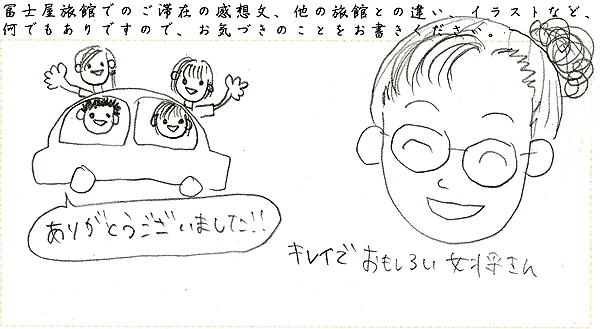 冨士屋旅館でのご滞在の感想文、他の旅館との違い、イラストなど、
何でもありですので、お気づきのことをお書きください。
ありがとうございました!!
キレイで おもしろい 女将さん